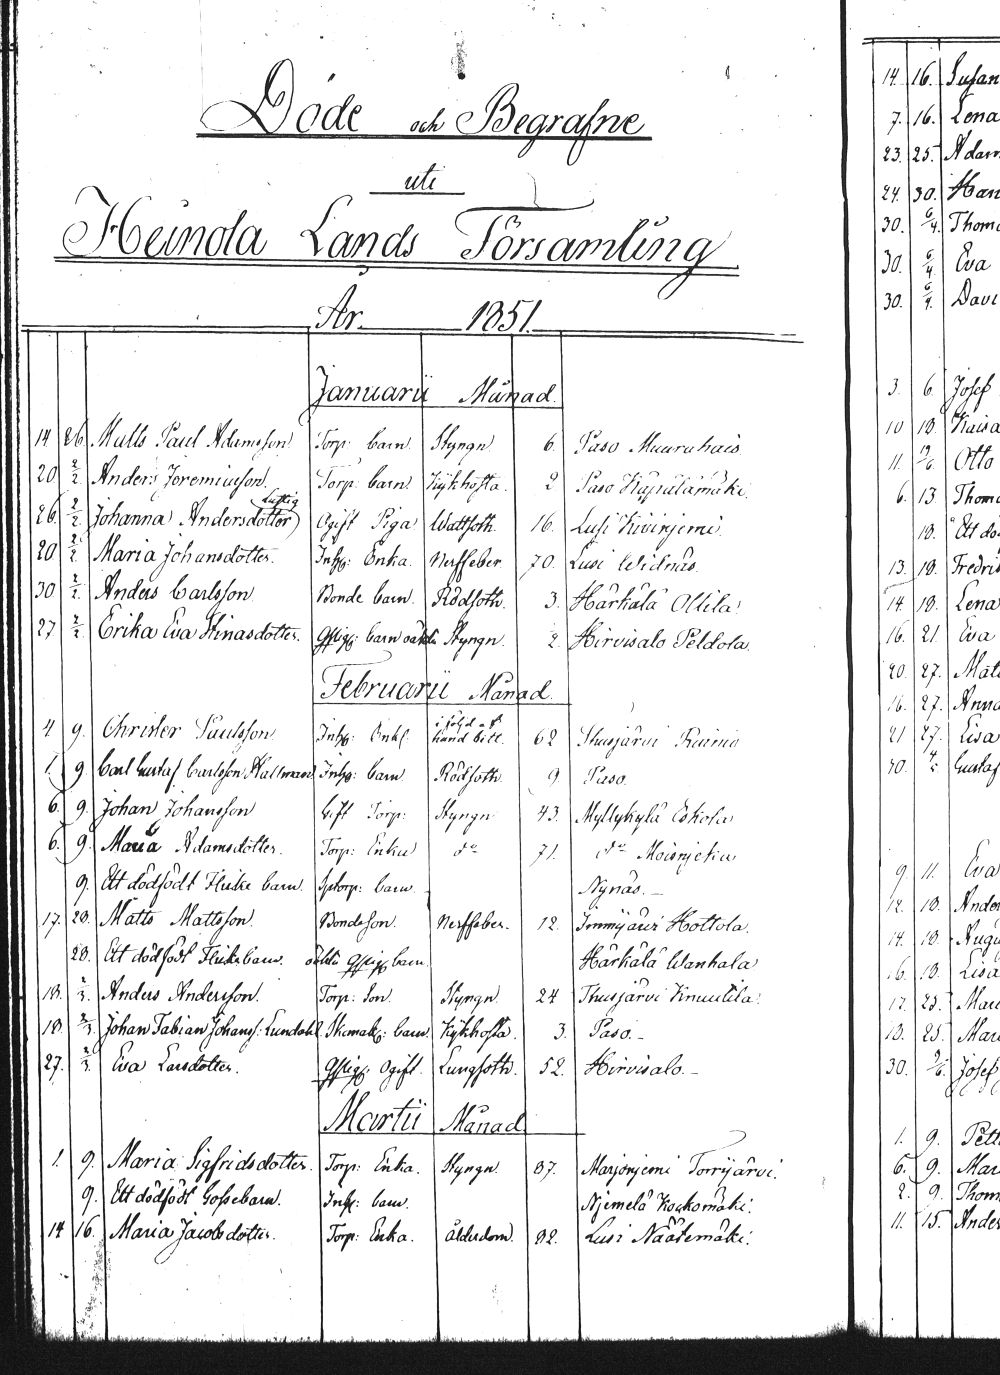 Döde och Begrafne
uti
Heinola Lands Församling
År 1851.
Januarii Månad.
14 26 Matts Paul Adamsson Torp: barn Styngn 6. Paso Muuruhais
20 2/2. Anders Jeremiasson. Torp: barn Kikhosta. 2 Paso Käpälämäki.
26. 2/2. Johanna Andersdotter Ogift Piga Wattsoth 16. Lusi Kivinjemi
20 2/2. Maria Johansdotter. Inhy: Enka. Nerffeber 70. Lusi Widnäs.
30 2/2. Anders Carlsson. Bonde barn. Rödsoth. 3. Härkälä Ollila.
27. 2/2. Erika Eva Stinasdotter. barn oäkta Styngn. 2. Hirvisalo Peldola.
Februarii Månad.
4 9. Christer Paulsson. Inhy: Enkl. i följd af hund bitt. 62 Thusjärvi Ruinio
1. 9. Carl Gustaf Carlsson Hallman Inhy: barn. Rödsoth. 9 Paso.
6. 9. Johan Johansson Gift Torp: Styngn 43. Myllykylä Eskola
6. 9. Maria Adamsdotter. Torp: Enka do 71. do Moisnjeka
9. Ett dödfödt Flicke barn. barn. Nynäs. -
17. 20. Matts Mattsson. Bondeson. Nerffeber. 12. Immjärvi Hottola.
20. Ett dödfödt Flickebarn. oäkta barn. Härkälä Wanhala
18. 2/3. Anders Andersson. Torp: Son. Styngn 24 Thusjärvi Knuutila.
18. 2/3. Johan Fabian Johanss: Lundahl barn. Kikhosta. 3. Paso. -
27. 2/3. Eva Larsdotter. Ogift. Lungsoth. 52. Hirvisalo. -
Martii Månad
1. 9. Maria Sigfridsdotter. Torp: Enka. Styngn. 87. Marjonjemi Torrijärvi.
9. Ett dödfödt Gossebarn. Inhy: barn. Njemelä Koukomäki.
14 16. Maria Jacobsdotter. Torp: Enka. ålderdom. 82. Lusi Näätemäki.
14. 16. Susan
7. 16. Lena
23. 25. Adam
24. 30. Han
30. 6/4. Thoma
30. 6/4. Eva
30. 6/4. Davi
3. 6. Josef
10 18. Kaisa
11. Otto
6. 13. Thoma
18. Ett dö
13. 18. Fredri
14. 18. Lena
16. 21. Eva
20. 27. Mat
16. 27. Anna
21 27. Lisa
30. Gustaf
9. 11. Eva
12. 18. Ander
14. 18. Augu
16. 18. Lisa
17. 25. Mar
18. 25. Mar
30. Josef
1. 9. Pett
6. 9. Mar
2. 9. Thom
11. 15. Ander